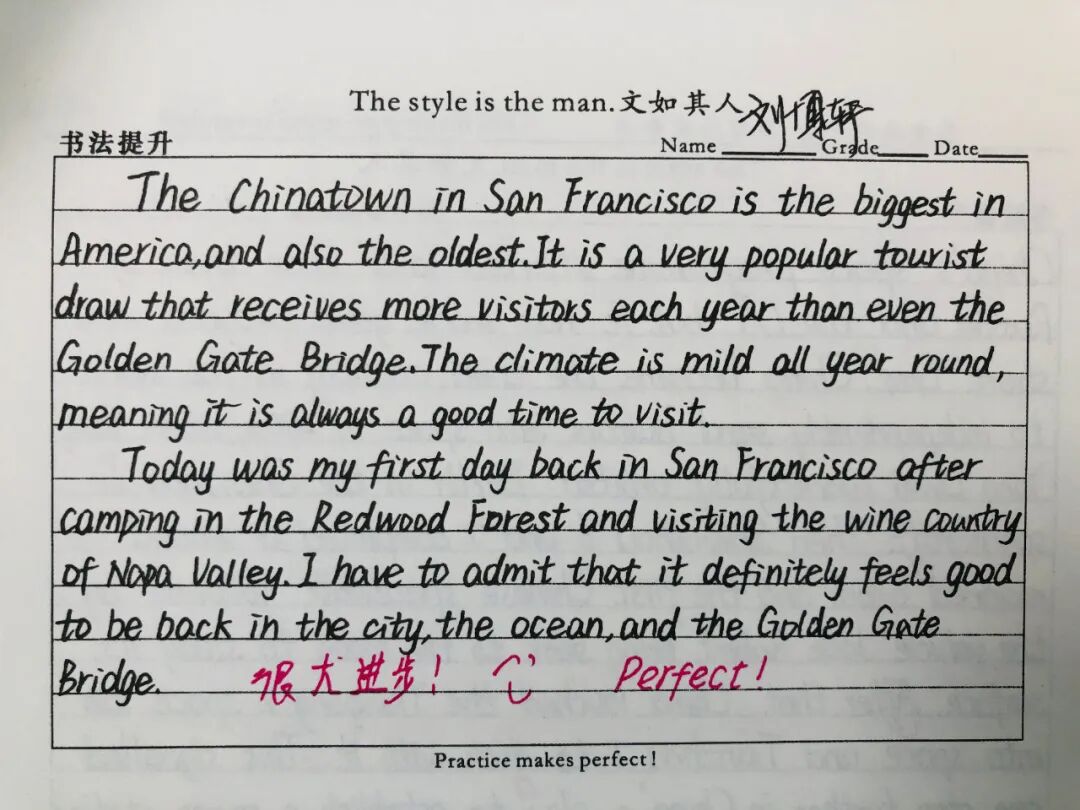 The style is the man.文如其人
书法提升 Name Grade Date
The Chinatown in San Francisco is the biggest in
America,and also the oldest.It is a very popular tourist
draw that receives more visitors each year than even the
Golden Gate Bridge.The climate is mild all year round,
meaning it is always a good time to visit.
Today was my first day back in San Francisco after
camping in the Redwood Forest and visiting the wine country
of Napa Valley.I have to admit that it definitely feels good
to be back in the city,the ocean,and the Golden Gate
Bridge. 很大进步! Perfect!
Practice makes perfect!